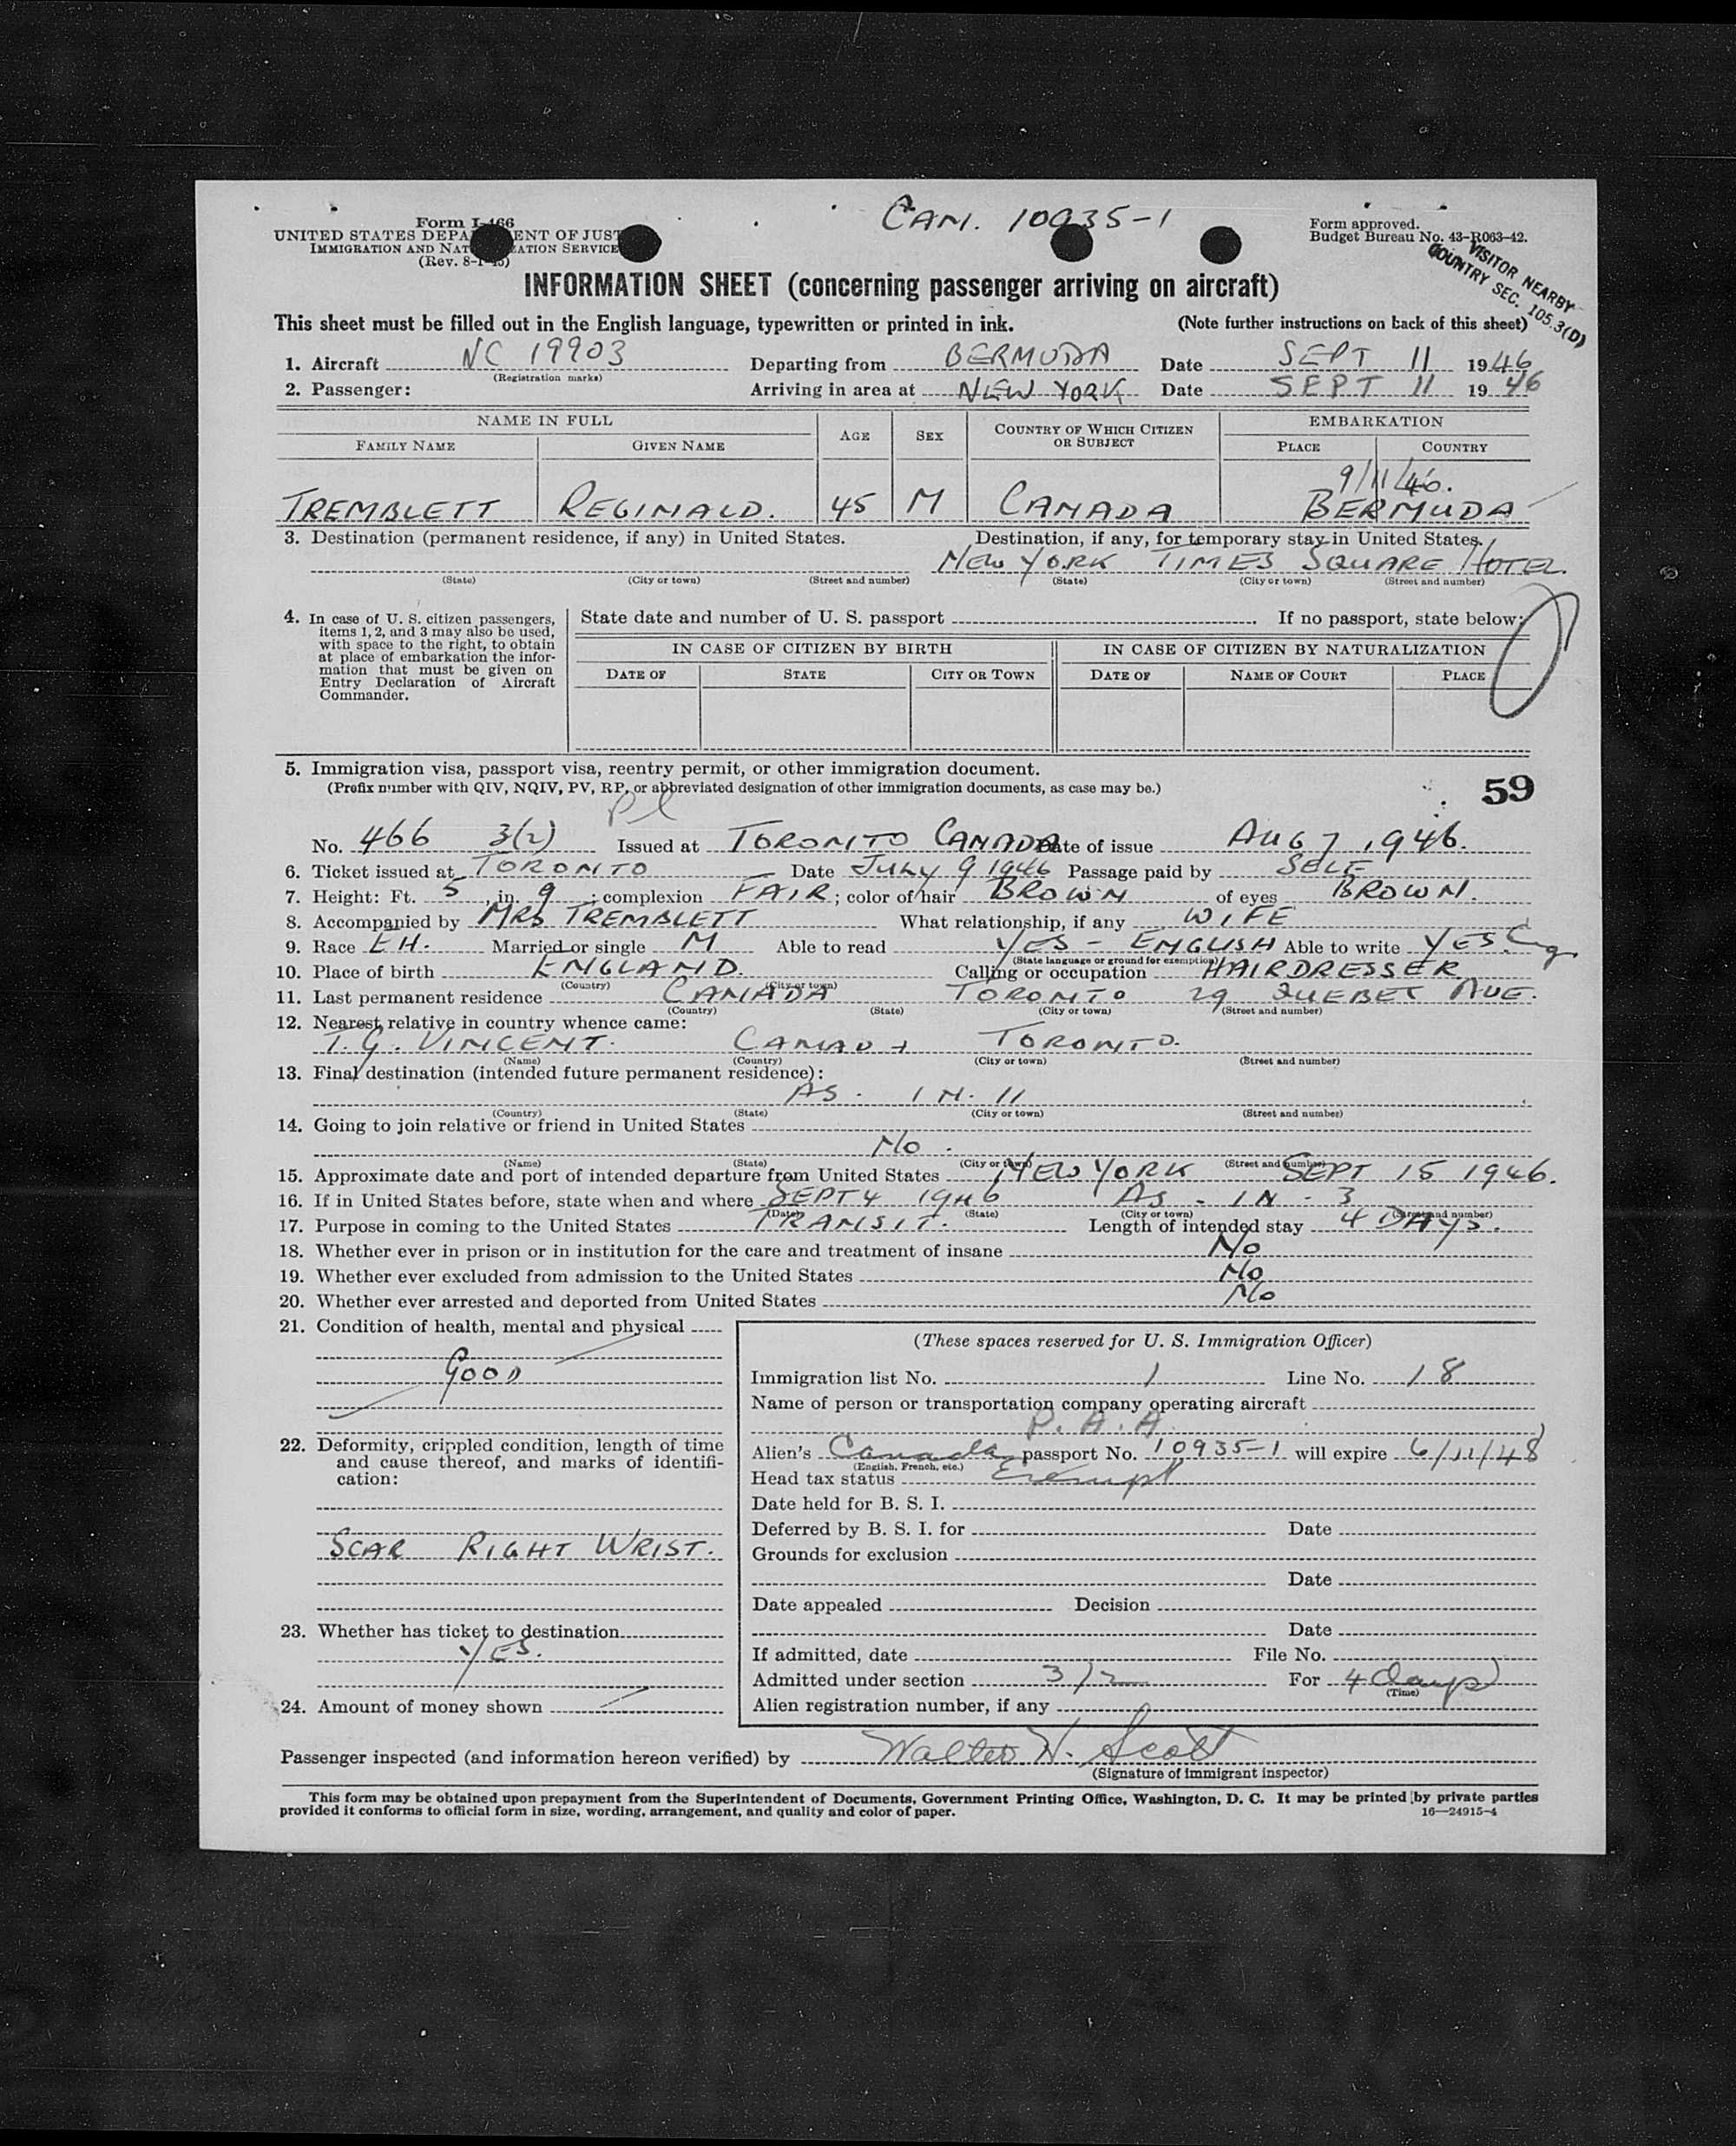 CAN. 10935-1
Form I-466
UNITED STATES DEPARTMENT OF JUSTICE
IMMIGRATION AND NATURALIZATION SERVICE
(Rev. 8-1-45)
Form approved.
Budget Bureau No. 43-R063-42.
VISITOR NEARBY
COUNTRY SEC. 105.3(D)
INFORMATION SHEET (concerning passenger arriving on aircraft)
This sheet must be filled out in the English language, typewritten or printed in ink. (Note further instructions on back of this sheet)
1. Aircraft NC 19903 Departing from BERMUDA Date SEPT 11 1946
(Registration marks)
2. Passenger: Arriving in area at NEW YORK Date SEPT 11 1946
NAME IN FULL AGE SEX COUNTRY OF WHICH CITIZEN OR SUBJECT EMBARKATION
FAMILY NAME GIVEN NAME PLACE COUNTRY
9/11/46.
TREMBLETT REGINALD. 45 M CANADA BERMUDA
3. Destination (permanent residence, if any) in United States. Destination, if any, for temporary stay in United States.
NEW YORK TIMES SQUARE HOTEL.
(State) (City or town) (Street and number) (State) (City or town) (Street and number)
4. In case of U. S. citizen passengers,
items 1, 2, and 3 may also be used,
with space to the right, to obtain
at place of embarkation the infor-
mation that must be given on
Entry Declaration of Aircraft
Commander.
State date and number of U. S. passport If no passport, state below:
IN CASE OF CITIZEN BY BIRTH IN CASE OF CITIZEN BY NATURALIZATION
DATE OF STATE CITY OR TOWN DATE OF NAME OF COURT PLACE
5. Immigration visa, passport visa, reentry permit, or other immigration document.
(Prefix number with QIV, NQIV, PV, RP, or abbreviated designation of other immigration documents, as case may be.)
59
No. 466 3(2) Issued at TORONTO CANADA Date of issue AUG 7 1946.
6. Ticket issued at TORONTO Date JULY 9 1946 Passage paid by SELF
7. Height: Ft. 5, in. 9; complexion FAIR; color of hair BROWN of eyes BROWN.
8. Accompanied by MRS TREMBLETT What relationship, if any WIFE
9. Race EH. Married or single M Able to read YES - ENGLISH Able to write YES. Eng
(State language or ground for exemption)
10. Place of birth ENGLAND. Calling or occupation HAIRDRESSER
(Country) (City or town)
11. Last permanent residence CANADA TORONTO 29 QUEBEC AVE.
(Country) (State) (City or town) (Street and number)
12. Nearest relative in country whence came:
T. G. VINCENT. CANADA TORONTO.
(Name) (Country) (City or town) (Street and number)
13. Final destination (intended future permanent residence):
AS. IN. 11
(Country) (State) (City or town) (Street and number)
14. Going to join relative or friend in United States
No.
(Name) (State) (City or town) (Street and number)
15. Approximate date and port of intended departure from United States NEW YORK SEPT 15 1946.
16. If in United States before, state when and where SEPT 4 1946 AS - IN - 3
(Date) (State) (City or town) (Street and number)
17. Purpose in coming to the United States TRANSIT. Length of intended stay 4 DAYS.
18. Whether ever in prison or in institution for the care and treatment of insane No
19. Whether ever excluded from admission to the United States No
20. Whether ever arrested and deported from United States No
21. Condition of health, mental and physical
GOOD
22. Deformity, crippled condition, length of time
and cause thereof, and marks of identifi-
cation:
SCAR RIGHT WRIST.
23. Whether has ticket to destination
YES.
24. Amount of money shown
(These spaces reserved for U. S. Immigration Officer)
Immigration list No. 1 Line No. 18
Name of person or transportation company operating aircraft
P. A. A.
Alien's Canada passport No. 10935-1 will expire 6/11/48
(English, French, etc.)
Head tax status Exempt
Date held for B. S. I.
Deferred by B. S. I. for Date
Grounds for exclusion
Date
Date appealed Decision
Date
If admitted, date File No.
Admitted under section 3/2 For 4 Days
(Time)
Alien registration number, if any
Passenger inspected (and information hereon verified) by Walter W. Scott
(Signature of immigrant inspector)
This form may be obtained upon prepayment from the Superintendent of Documents, Government Printing Office, Washington, D. C. It may be printed by private parties
provided it conforms to official form in size, wording, arrangement, and quality and color of paper. 16—24915-4